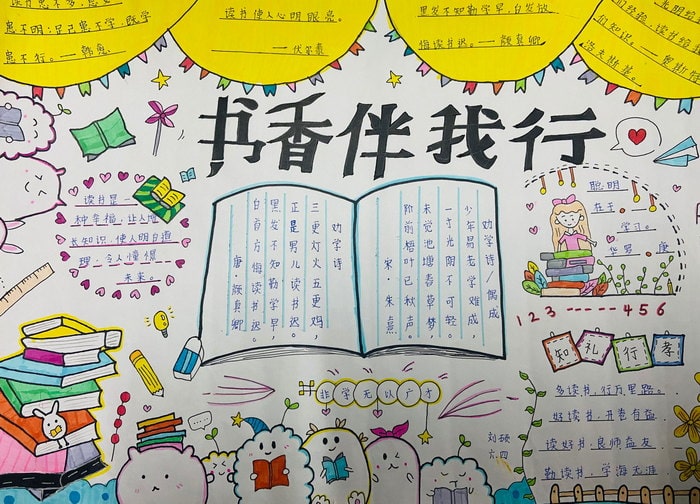 患不明；既已患不学，既学
患不行。——韩愈
读书使人心明眼亮。
——伏尔泰
黑发不知勤学早，白首方
悔读书迟。——颜真卿
书香伴我行
读书是一
种幸福，让人增
长知识，使人明白道
理，令人憧憬
未来。
劝学诗
三更灯火五更鸡，
正是男儿读书迟，
黑发不知勤学早，
白首方悔读书迟。
唐·颜真卿
劝学诗/偶成
少年易老学难成，
一寸光阴不可轻。
未觉池塘春草梦，
阶前梧叶已秋声。
宋·朱熹
聪明
在于
学习。
华罗庚
1 2 3 ----- 4 5 6
知 礼 行 孝
多读书，行万里路。
好读书，开卷有益
读好书，良师益友
勤读书，学海无涯
非学无以广才
刘硕
六.四